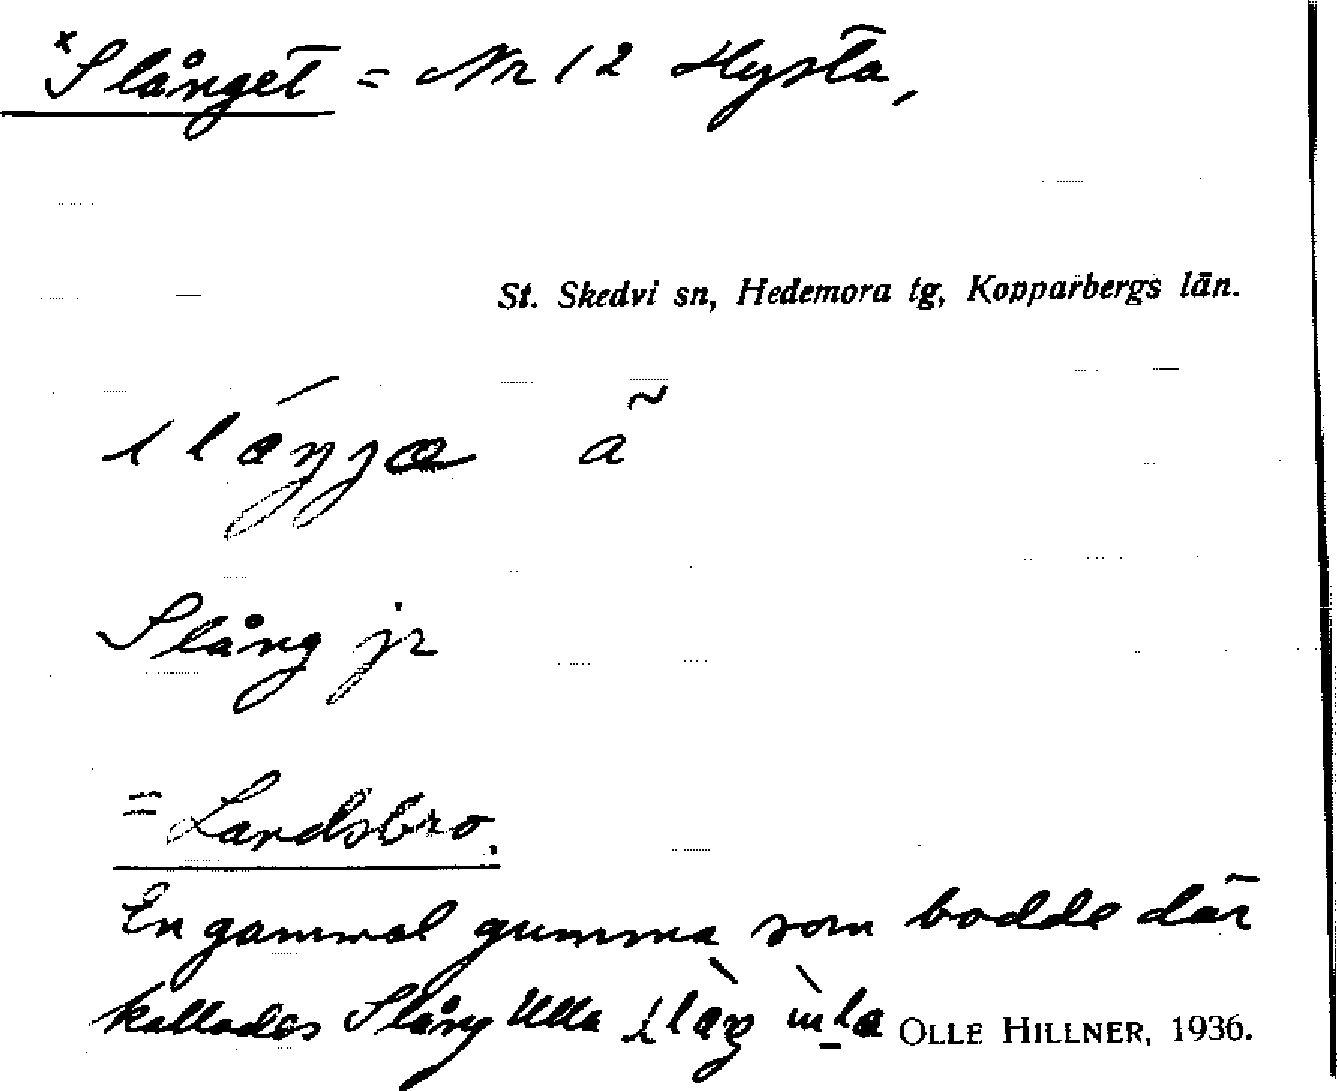 ×Slånget = Nr 12 Hysta,
St. Skedvi sn, Hedemora tg, Kopparbergs län.
Slång jr
= Landsbro.
En gammal gumma som bodde där
kallades Slång Ulla OLLE HILLNER, 1936.